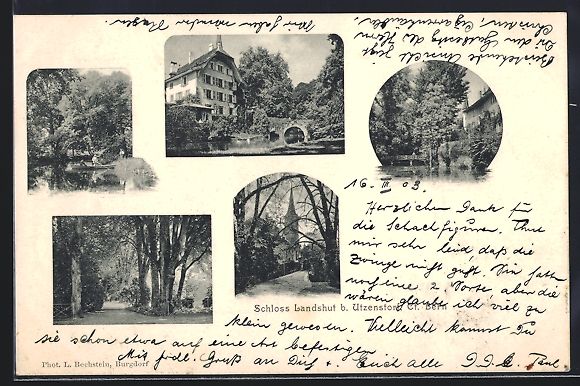 Wir haben
Bestehende Ansicht zeigt
die Besitzung des Herrn
16. III. 03.
Herzlichen Dank für
die Schachfiguren. Thut
mir sehr leid, daß die
Zwinge nicht geht. Wir hatten
noch eine 2. Sorte aber die
wären glaube ich viel zu
klein gewesen. Vielleicht kannst Du
sie schon etwa auf eine Art befestigen
Mit frdl. Gruß an Dich + Euch alle
Schloss Landshut b. Utzenstorf Ct. Bern
Phot. L. Bechstein, Burgdorf